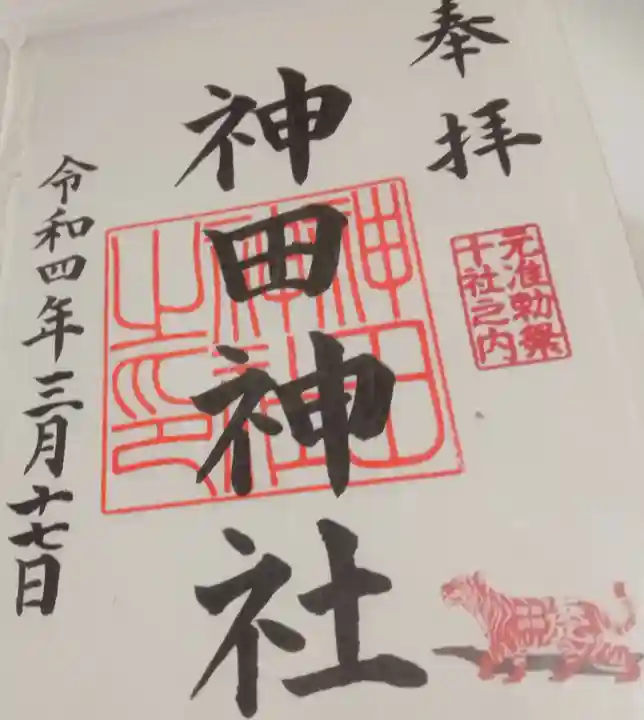 奉拝
元准勅祭
十社之内
神田神社
神田
神社
之印
令和四年三月十七日